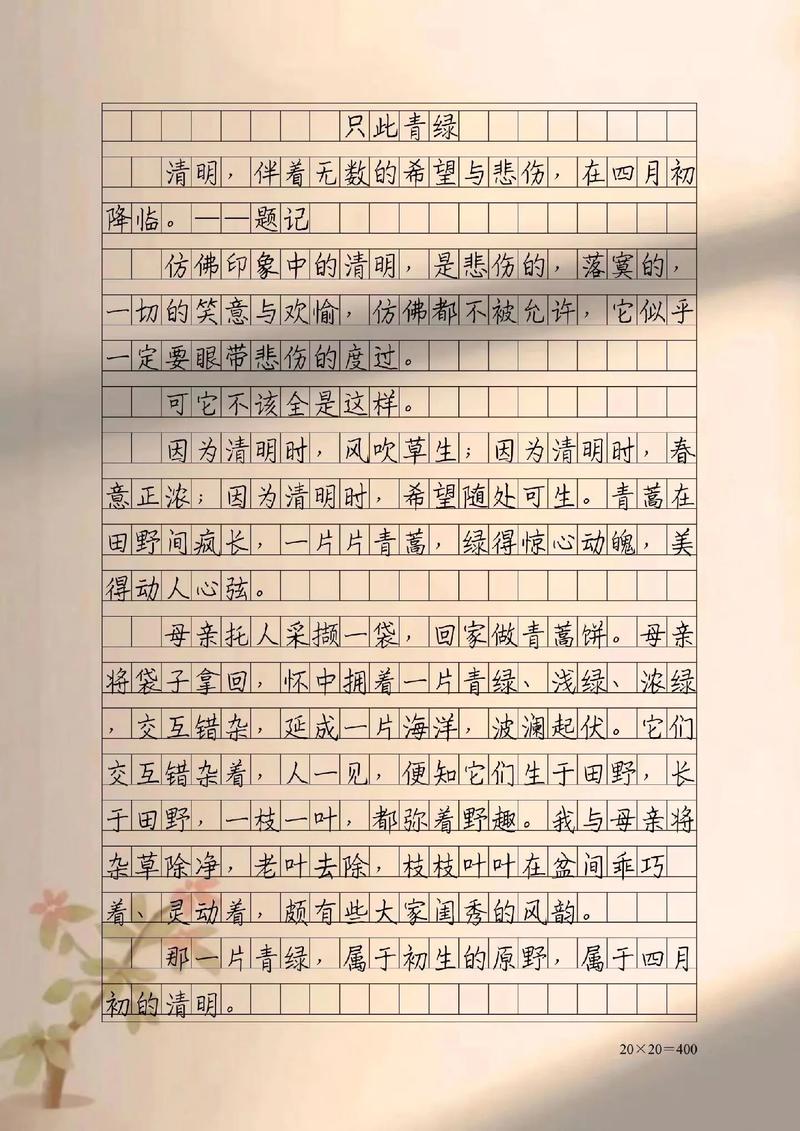 只此青绿
清明，伴着无数的希望与悲伤，在四月初
降临。——题记
仿佛印象中的清明，是悲伤的，落寞的，
一切的笑意与欢愉，仿佛都不被允许，它似乎
一定要眼带悲伤的度过。
可它不该全是这样。
因为清明时，风吹草生；因为清明时，春
意正浓；因为清明时，希望随处可生。青蒿在
田野间疯长，一片片青蒿，绿得惊心动魄，美
得动人心弦。
母亲托人采撷一袋，回家做青蒿饼。母亲
将袋子拿回，怀中拥着一片青绿、浅绿、浓绿
，交互错杂，延成一片海洋，波澜起伏。它们
交互错杂着，人一见，便知它们生于田野，长
于田野，一枝一叶，都弥着野趣。我与母亲将
杂草除净，老叶去除，枝枝叶叶在盆间乖巧
着、灵动着，颇有些大家闺秀的风韵。
那一片青绿，属于初生的原野，属于四月
初的清明。
20×20=400